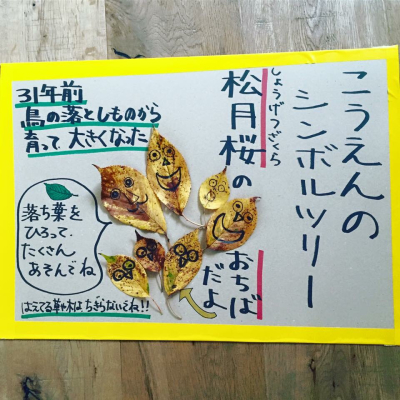 こうえんの
シンボルツリー
しょうげつざくら
松月桜の
おちば
だよ
31年前
鳥の落としものから
育って大きくなった
落ち葉を
ひろって、
たくさん
あそんでね
はえてる草や木はちぎらないでね!!